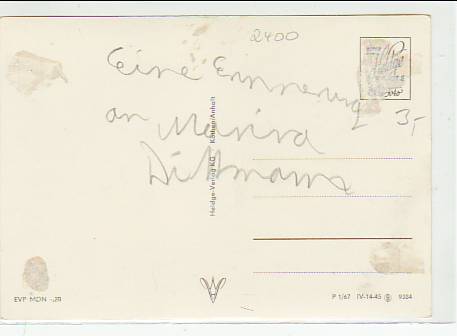 2400
Eine Erinnerung
an Marina
Dittmann
3,-
Heldge-Verlag KG Köthen/Anhalt
EVP MDN -,20
P 1/67 IV-14-45 9384